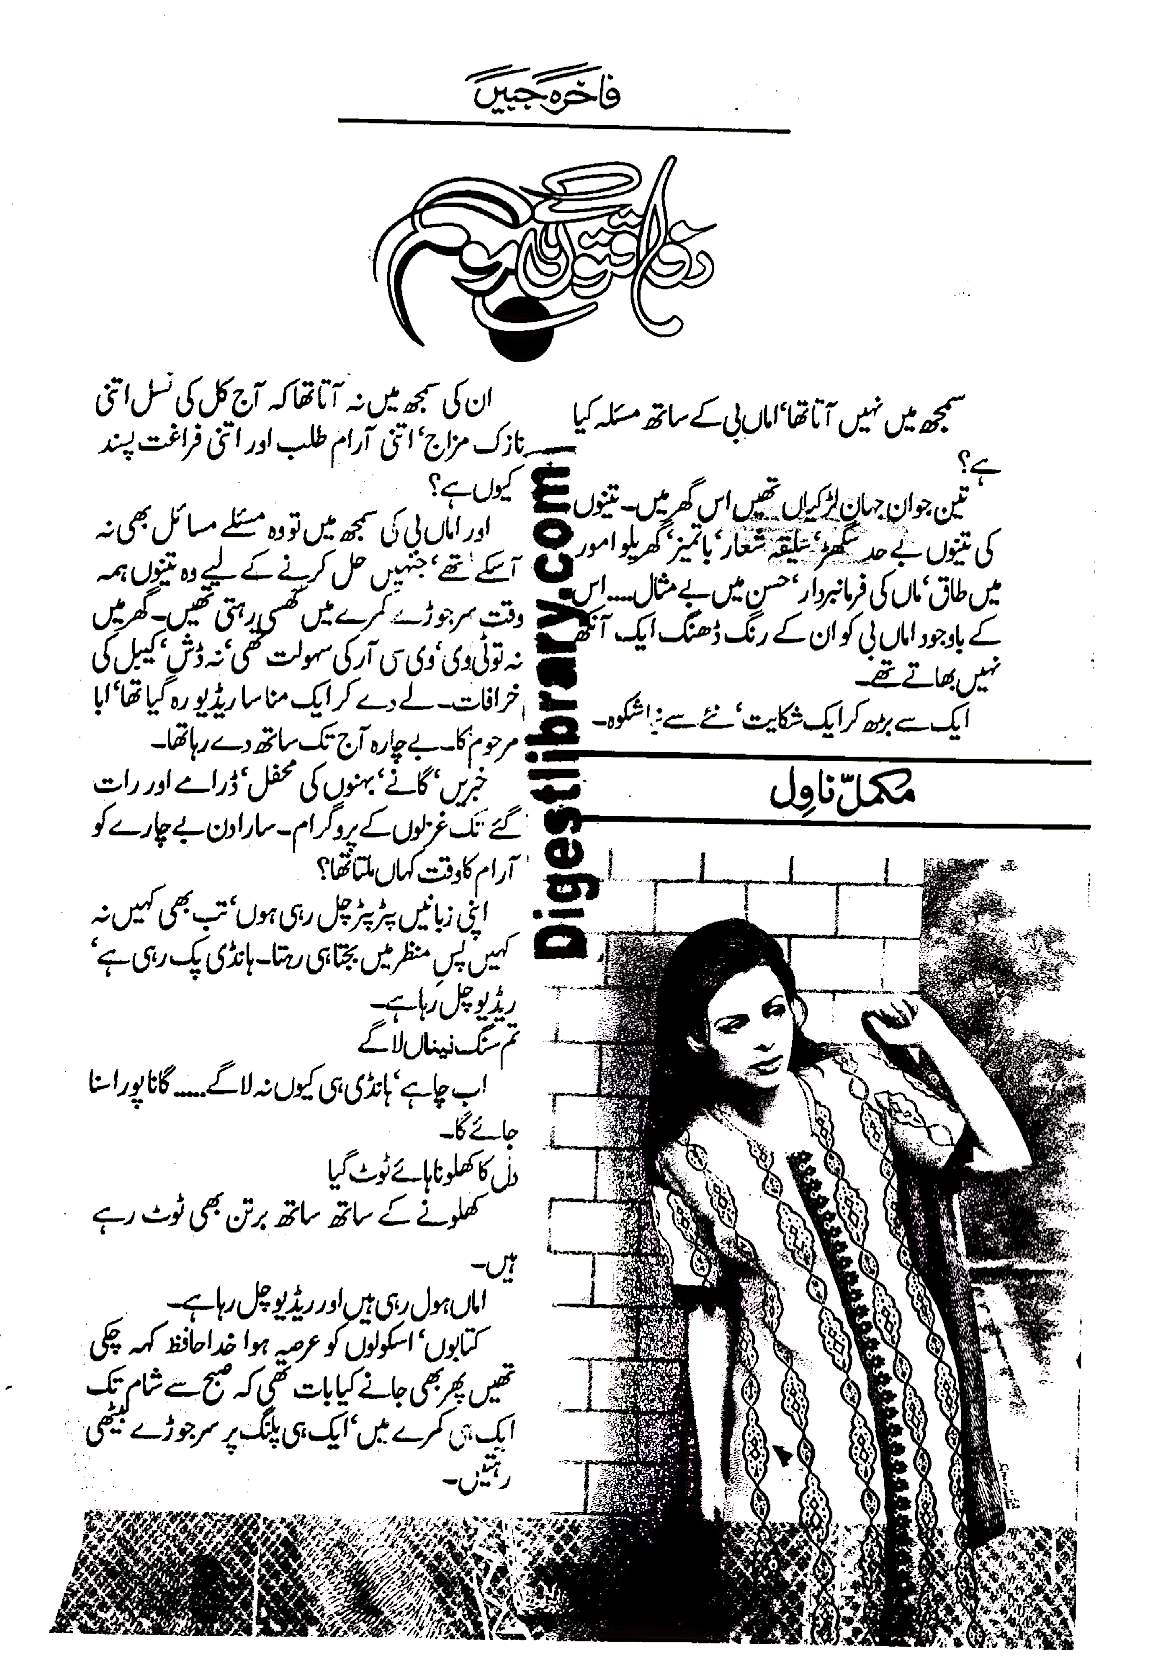 فاخرہ جبیں
رفاقتوں کے موسم
سمجھ میں نہیں آتا تھا‘ اماں بی کے ساتھ مسئلہ کیا
ہے؟
تین جوان جہان لڑکیاں تھیں اس گھر میں۔ تینوں
کی تینوں بے حد سگھڑ‘ سلیقہ شعار‘ باتمیز‘ گھریلو امور
میں طاق‘ ماں کی فرمانبردار‘ حسن میں بے مثال.... اس
کے باوجود اماں بی کو ان کے رنگ ڈھنگ ایک آنکھ
نہیں بھاتے تھے۔
ایک سے بڑھ کر ایک شکایت‘ نئے سے نیا شکوہ۔
مکمل ناول
ان کی سمجھ میں نہ آتا تھا کہ آج کل کی نسل اتنی
نازک مزاج‘ اتنی آرام طلب اور اتنی فراغت پسند
کیوں ہے؟
اور اماں بی کی سمجھ میں تو وہ مسئلے مسائل بھی نہ
آسکے تھے‘ جنہیں حل کرنے کے لیے وہ تینوں ہمہ
وقت سر جوڑے کمرے میں گھسی رہتی تھیں۔ گھر میں
نہ تو ٹی وی‘ وی سی آر کی سہولت تھی‘ نہ ڈش‘ کیبل کی
خرافات۔ لے دے کر ایک منا سا ریڈیو رہ گیا تھا‘ ابا
مرحوم کا۔ بے چارہ آج تک ساتھ دے رہا تھا۔
خبریں‘ گانے‘ بہنوں کی محفل‘ ڈرامے اور رات
گئے تک غزلوں کے پروگرام۔ سارا دن بے چارے کو
آرام کا وقت کہاں ملتا تھا؟
اپنی زبانیں پٹر پٹر چل رہی ہوں‘ تب بھی کہیں نہ
کہیں پس منظر میں بجتا ہی رہتا۔ ہانڈی پک رہی ہے‘
ریڈیو چل رہا ہے۔
تم سنگ نیناں لاگے
اب چاہے‘ ہانڈی ہی کیوں نہ لاگے..... گانا پورا سنا
جائے گا۔
دل کا کھلونا ہائے ٹوٹ گیا
کھلونے کے ساتھ ساتھ برتن بھی ٹوٹ رہے
ہیں۔
اماں ہول رہی ہیں اور ریڈیو چل رہا ہے۔
کتابوں‘ اسکولوں کو عرصہ ہوا خدا حافظ کہہ چکی
تھیں پھر بھی جانے کیا بات تھی کہ صبح سے شام تک
ایک ہی کمرے میں‘ ایک ہی پلنگ پر سر جوڑے بیٹھی
رہتیں۔
Digestlibrary.com